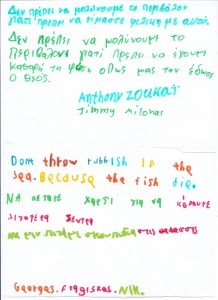 Δεν πρέπει να μολύνουμε το περιβάλον
γιατί πρέπει να είμαστε φιλικοί με αυτό.
Δεν πρέπει να μολύνουμε το
Περιβάλον γιατί πρέπει να έχουμε
καθαρή τη φύση όπως μας τον έδωσε
ο θεός.
Anthony Zoukas
Jimmy Milonas
Dont throw rubbish in the
sea. Because the fish die.
ΝΑ πεταμε χαρτί για να κάνουμε
λιγοτερα δεντρα
να μην πετάμε σκουπίδια στις θάλασσες
Georgos. Fragiskos. Nik.